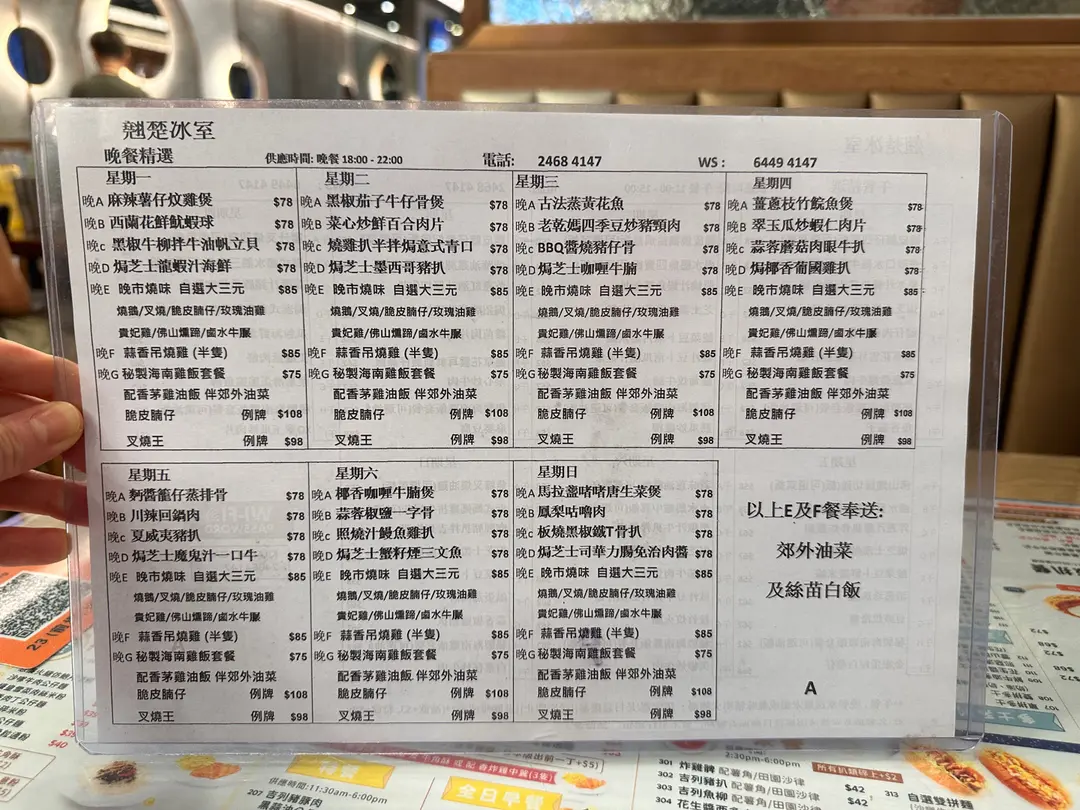 翹楚冰室
晚餐精選 供應時間: 晚餐 18:00 - 22:00 電話: 2468 4147 WS : 6449 4147
星期一
晚A 麻辣薯仔炆雞煲 $78
晚B 西蘭花鮮魷蝦球 $78
晚c 黑椒牛柳拌牛油帆立貝 $78
晚D 焗芝士龍蝦汁海鮮 $78
晚E 晚市燒味 自選大三元 $85
燒鵝/叉燒/脆皮腩仔/玫瑰油雞
貴妃雞/佛山燻蹄/鹵水牛𦟌
晚F 蒜香吊燒雞 (半隻) $85
晚G 秘製海南雞飯套餐 $75
配香茅雞油飯 伴郊外油菜
脆皮腩仔 例牌 $108
叉燒王 例牌 $98
星期二
晚A 黑椒茄子牛仔骨煲 $78
晚B 菜心炒鮮百合肉片 $78
晚c 燒雞扒半拌焗意式青口 $78
晚D 焗芝士墨西哥豬扒 $78
晚E 晚市燒味 自選大三元 $85
燒鵝/叉燒/脆皮腩仔/玫瑰油雞
貴妃雞/佛山燻蹄/鹵水牛𦟌
晚F 蒜香吊燒雞 (半隻) $85
晚G 秘製海南雞飯套餐 $75
配香茅雞油飯 伴郊外油菜
脆皮腩仔 例牌 $108
叉燒王 例牌 $98
星期三
晚A 古法蒸黃花魚 $78
晚B 老乾媽四季豆炒豬頸肉 $78
晚c BBQ醬燒豬仔骨 $78
晚D 焗芝士咖喱牛腩 $78
晚E 晚市燒味 自選大三元 $85
燒鵝/叉燒/脆皮腩仔/玫瑰油雞
貴妃雞/佛山燻蹄/鹵水牛𦟌
晚F 蒜香吊燒雞 (半隻) $85
晚G 秘製海南雞飯套餐 $75
配香茅雞油飯 伴郊外油菜
脆皮腩仔 例牌 $108
叉燒王 例牌 $98
星期四
晚A 薑蔥枝竹鯇魚煲 $78
晚B 翠玉瓜炒蝦仁肉片 $78
晚c 蒜蓉蘑菇肉眼牛扒 $78
晚D 焗椰香葡國雞扒 $78
晚E 晚市燒味 自選大三元 $85
燒鵝/叉燒/脆皮腩仔/玫瑰油雞
貴妃雞/佛山燻蹄/鹵水牛𦟌
晚F 蒜香吊燒雞 (半隻) $85
晚G 秘製海南雞飯套餐 $75
配香茅雞油飯 伴郊外油菜
脆皮腩仔 例牌 $108
叉燒王 例牌 $98
星期五
晚A 麪醬籠仔蒸排骨 $78
晚B 川辣回鍋肉 $78
晚c 夏威夷豬扒 $78
晚D 焗芝士魔鬼汁一口牛 $78
晚E 晚市燒味 自選大三元 $85
燒鵝/叉燒/脆皮腩仔/玫瑰油雞
貴妃雞/佛山燻蹄/鹵水牛𦟌
晚F 蒜香吊燒雞 (半隻) $85
晚G 秘製海南雞飯套餐 $75
配香茅雞油飯 伴郊外油菜
脆皮腩仔 例牌 $108
叉燒王 例牌 $98
星期六
晚A 椰香咖喱牛腩煲 $78
晚B 蒜蓉椒鹽一字骨 $78
晚c 照燒汁鰻魚雞扒 $78
晚D 焗芝士蟹籽煙三文魚 $78
晚E 晚市燒味 自選大三元 $85
燒鵝/叉燒/脆皮腩仔/玫瑰油雞
貴妃雞/佛山燻蹄/鹵水牛𦟌
晚F 蒜香吊燒雞 (半隻) $85
晚G 秘製海南雞飯套餐 $75
配香茅雞油飯 伴郊外油菜
脆皮腩仔 例牌 $108
叉燒王 例牌 $98
星期日
晚A 馬拉盞啫啫唐生菜煲 $78
晚B 鳳梨咕嚕肉 $78
晚c 板燒黑椒鐵T骨扒 $78
晚D 焗芝士司華力腸免治肉醬 $78
晚E 晚市燒味 自選大三元 $85
燒鵝/叉燒/脆皮腩仔/玫瑰油雞
貴妃雞/佛山燻蹄/鹵水牛𦟌
晚F 蒜香吊燒雞 (半隻) $85
晚G 秘製海南雞飯套餐 $75
配香茅雞油飯 伴郊外油菜
脆皮腩仔 例牌 $108
叉燒王 例牌 $98
以上E及F餐奉送:
郊外油菜
及絲苗白飯
A
供應時間:11:30am-6:00pm
207 吉列豬豚肉
全日早餐
2:30pm-6:00pm
301 炸雞髀 配薯角/田園沙律 $42
302 吉列豬扒 配薯角/田園沙律
303 吉列魚柳 配薯角/田園沙律 $42
304 花生醬西
所有扒類得上+$2
313 自選雙拼
多士